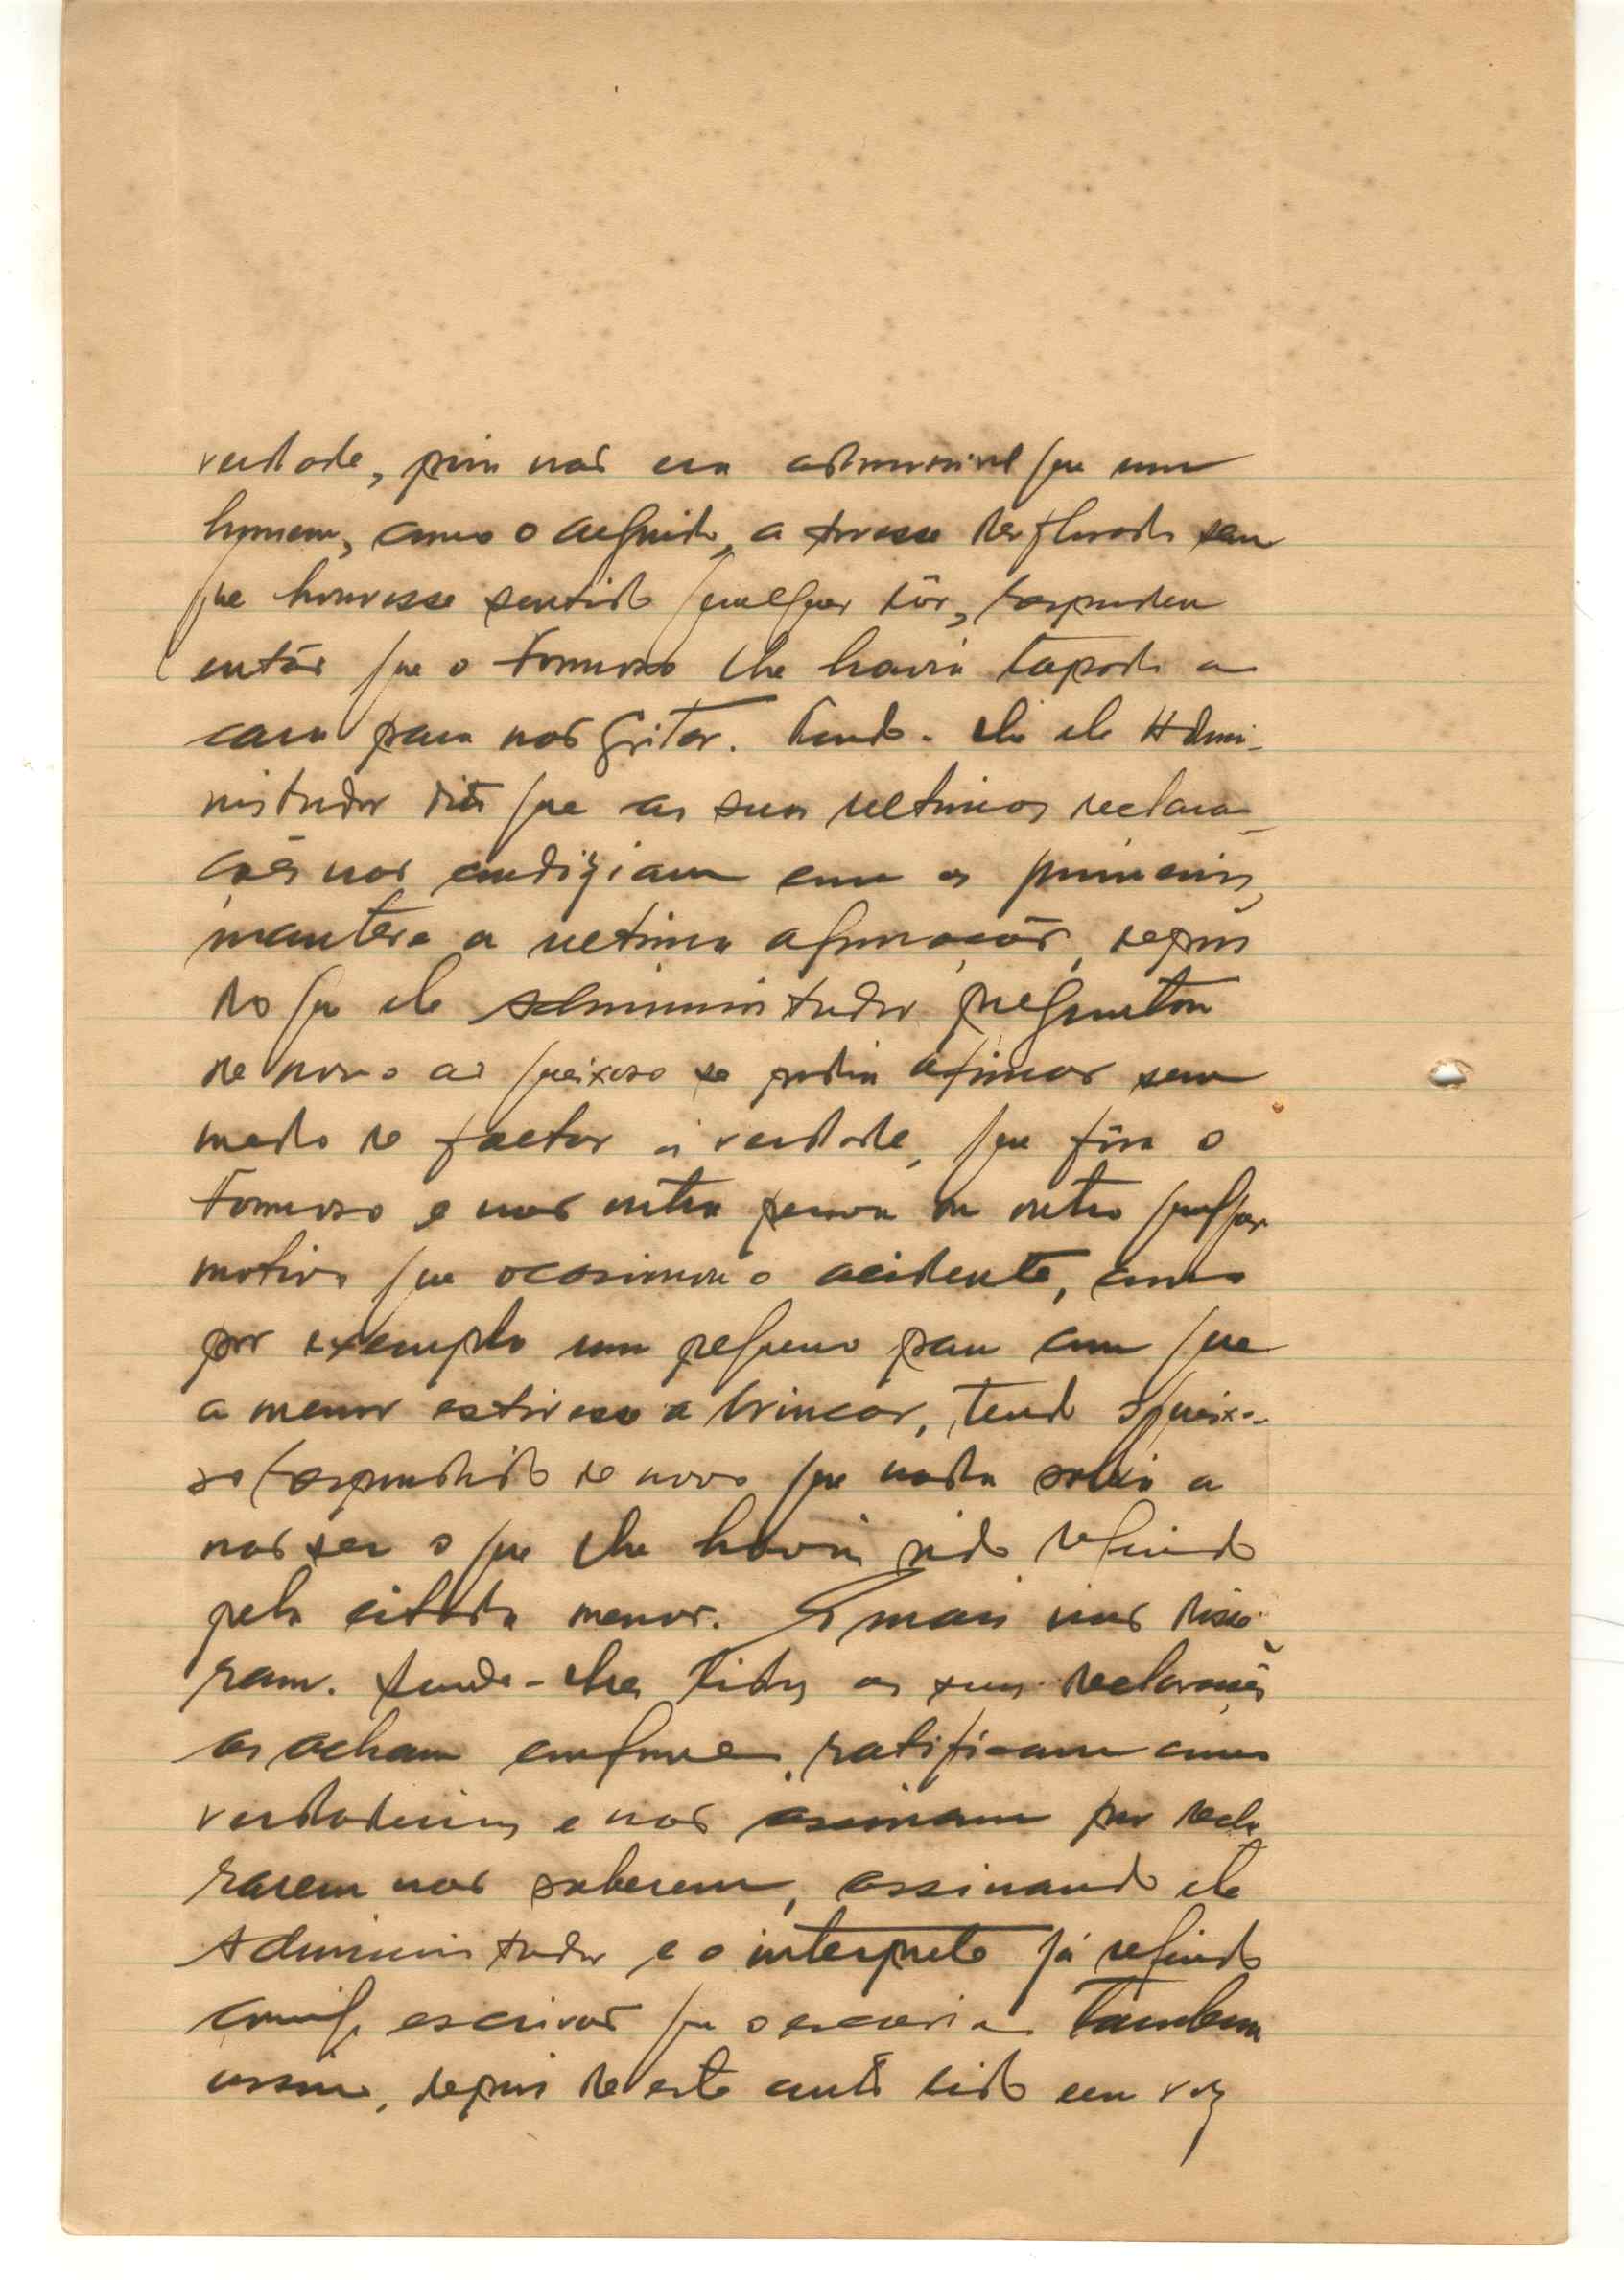 verdade, pois não era admissivel que um
homem, como o arguido, a tivesse desflorado sem
que houvesse sentido qualquer dôr, respondeu
então que o Formoso lhe havia tapado a
cara para não gritar. Tendo-lhe ele Admi-
nistrador dito que as suas ultimas declara-
ções não condiziam com as primeiras,
manteve a ultima afirmação, depois
do que ele Administrador preguntou
de novo ao queixoso se podia afirmar sem
medo de faltar á verdade, que fôra o
Formoso e não outra pessoa ou outro qualquer
motivo que ocasionou o acidente, como
por exemplo um pequeno pau com que
a menor estivesse a brincar, tendo o queixo-
so respondido de novo que nada sabia a
não ser o que lhe havia sido referido
pela citada menor. E mais não disse-
ram. Sendo-lhes lidas as suas declarações
as acham conformes, ratificam como
verdadeiras e não assinam por decla-
rarem não saberem, assinando ele
Administrador e o interprete já referido
comigo escrivão que o escrevi e tambem
assino, depois de este auto lido em voz